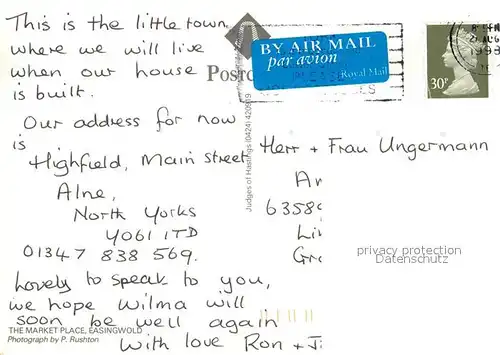 This is the little town
where we will live
when our house
is built.
Our address for now
is
Highfield, Main Street
Alne,
North Yorks
YO61 1TD
01347 838 569.
Lovely to speak to you,
we hope Wilma will
soon be well again
With love Ron +
THE MARKET PLACE, EASINGWOLD
Photograph by P. Rushton
Postc
BY AIR MAIL
par avion
Royal Mail
Judges of Hastings (0424) 420919
30P
Herr + Frau Ungermann
6358
privacy protection
Datenschutz